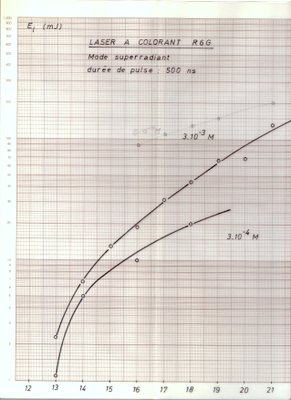 E₁ (mJ)
LASER A COLORANT R6G
Mode superradiant
durée de pulse : 500 ns
3.10⁻³ M
3.10⁻⁴ M
12 13 14 15 16 17 18 19 20 21